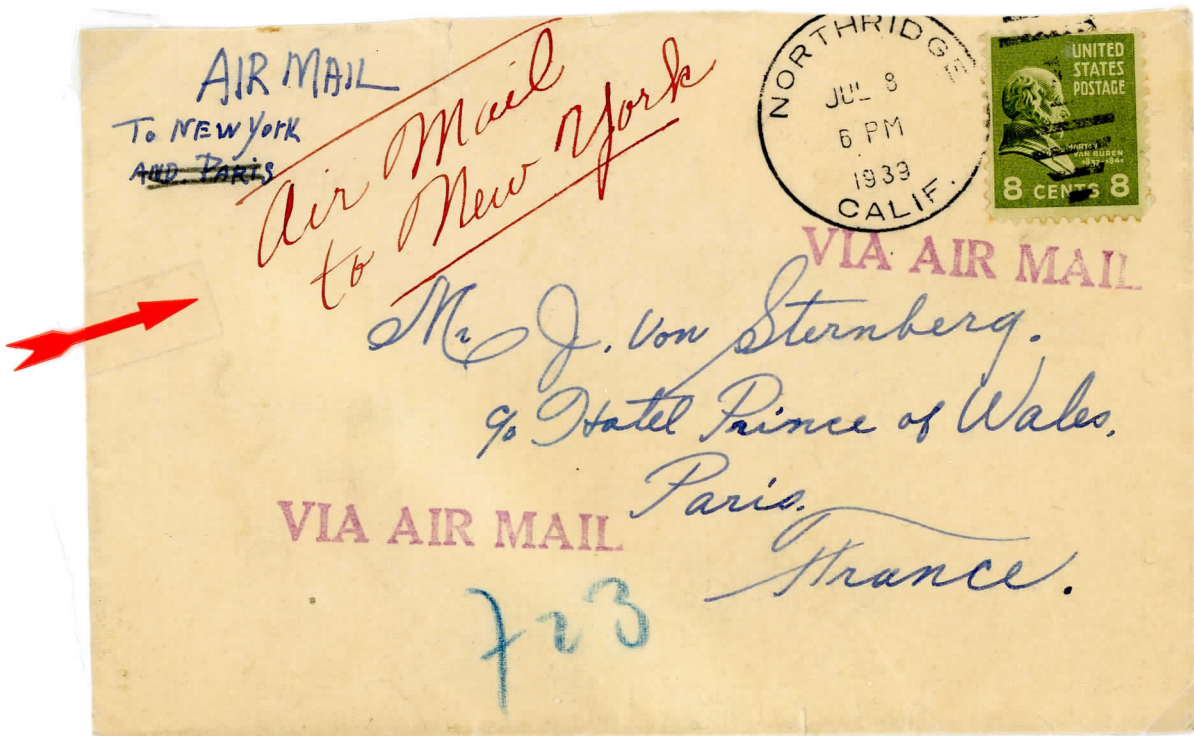 AIR MAIL
To NEW York
AND. PARIS
Air Mail
to New York
NORTHRIDGE
JUL 8
6 PM
1939
CALIF.
UNITED
STATES
POSTAGE
MARTIN
VAN BUREN
8 CENTS 8
VIA AIR MAIL
Mr J. von Sternberg.
c/o Hotel Prince of Wales,
Paris.
France.
VIA AIR MAIL
723